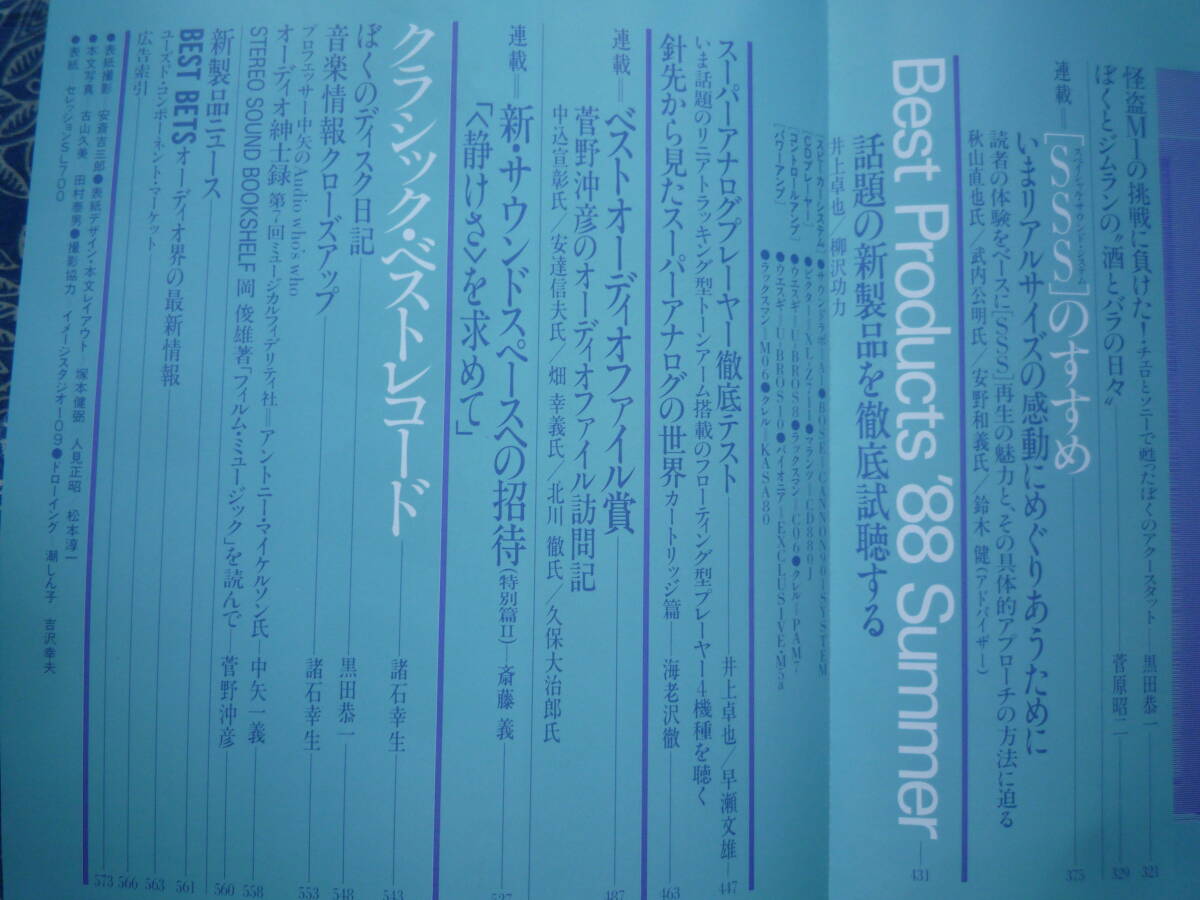 怪盗M1の挑戦に負けた!・チェロとソニーで甦ったぼくのアクースタット 黒田恭一 321
ぼくとジムランの“酒とバラの日々” 菅原昭二 329
連載=[SSS]のすすめ 375
いまリアルサイズの感動にめぐりあうために
読者の体験をベースに[SSS]再生の魅力と、その具体的アプローチの方法に迫る
秋山直也氏/武内公明氏/安野和義氏/鈴木 健(アドバイザー)
Best Products '88 Summer 431
話題の新製品を徹底試聴する
井上卓也/柳沢功力
[スピーカーシステム] BOSE CANNON901SYSTEM
[CDプレーヤー] ●ビクター XL-Z711●マランツ CD880J
[コントロールアンプ] ●ウエスギ U・BROS8●ラックスマン C06●クレル PAM7
[パワーアンプ] ●ウエスギ U・BROS10●パイオニア EXCLUSIVE・M5a
●ラックスマン M06●クレル KASA80
スーパーアナログプレーヤー徹底テスト 井上卓也/早瀬文雄 447
いま話題のリニアトラッキング型トーンアーム搭載のフローティング型プレーヤー4機種を聴く
針先から見たスーパーアナログの世界 カートリッジ篇 海老沢徹 463
連載=ベストオーディオファイル賞 487
菅野沖彦のオーディオファイル訪問記
中込宣彰氏/安達信夫氏/畑 幸義氏/北川 徹氏/久保大治郎氏
連載=新・サウンドスペースへの招待(特別篇II) 斎藤 義 527
「〈静けさ〉を求めて」
クラシック・ベストレコード 諸石幸生 543
ぼくのディスク日記 黒田恭一 548
音楽情報クローズアップ 諸石幸生 553
プロフェッサー中矢のAudio who's who
オーディオ紳士録 第7回 ミュージカルフィデリティ社=アントニー・マイケルソン氏 中矢一義 558
STEREO SOUND BOOKSHELF 岡 俊雄著「フィルム・ミュージック」を読んで 菅野沖彦 560
新製品ニュース 561
BEST BETS オーディオ界の最新情報 563
ユーズド・コンポーネント・マーケット 566
広告索引 573
●表紙撮影 安斎吉三郎●表紙デザイン・本文レイアウト 塚本健弼 人見正昭 松本淳一
●本文写真 古山久美 田村泰男●撮影協力 イメージスタジオ109●ドローイング 潮しん子 吉沢幸夫
●表紙 セレッションSL700